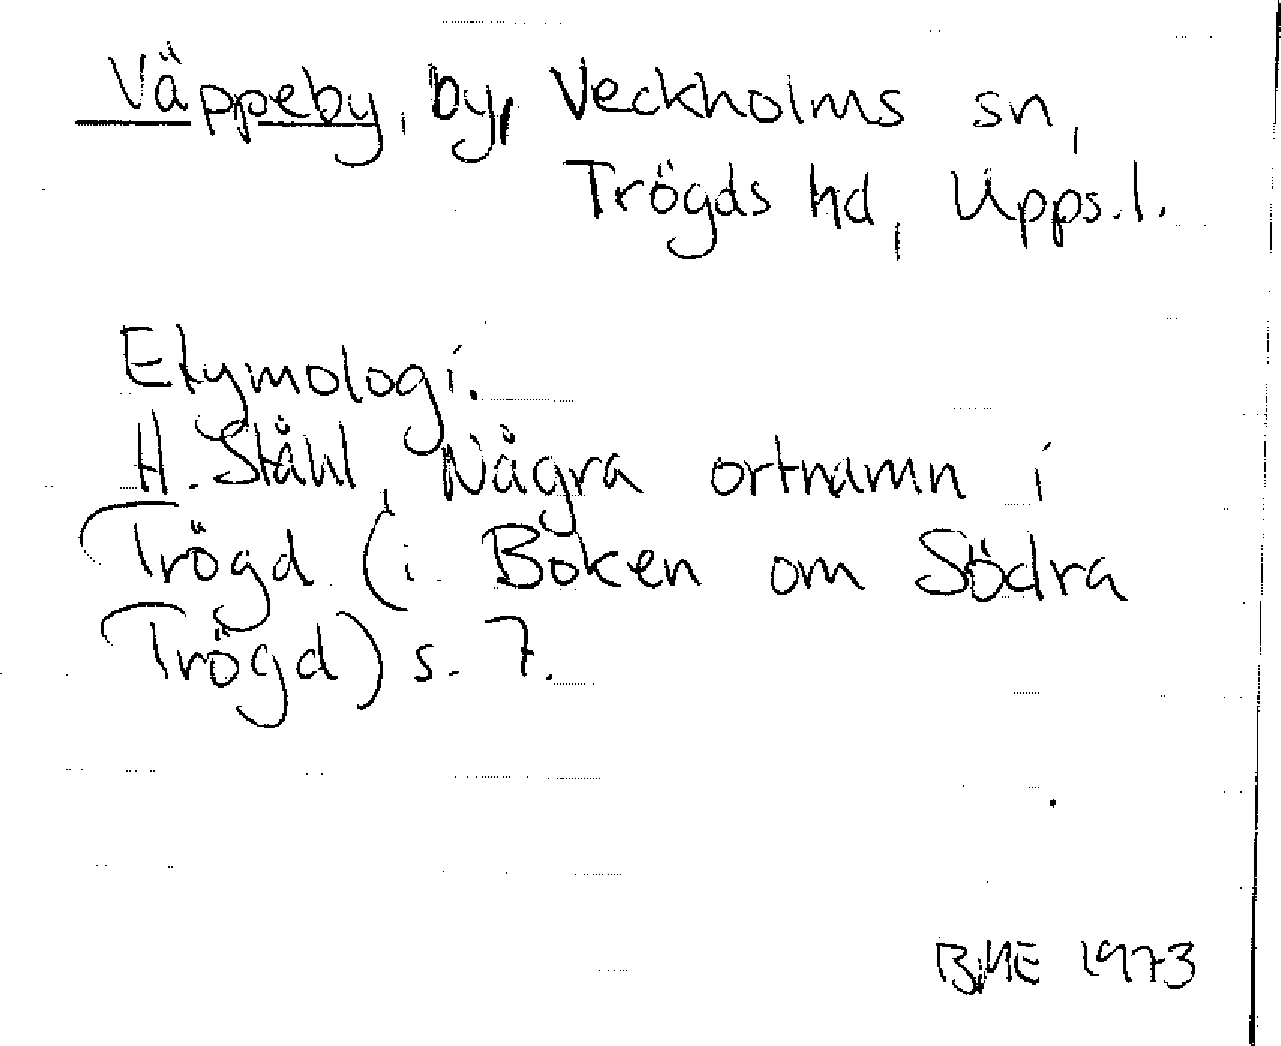 Väppeby, by, Veckholms sn,
Trögds hd, Upps.l.
Etymologi.
H. Ståhl, Några ortnamn i
Trögd (i Boken om Södra
Trögd) s. 7.
BME 1973